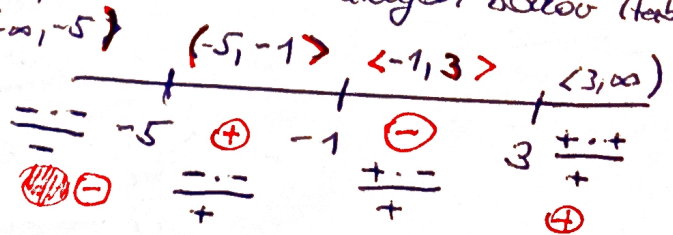 ∞, -5)
(-5, -1> <-1, 3> <3, ∞)
-5 -1 3
- · - / - ⊖
⊕ - · - / +
⊖ + · - / +
+ · + / + ⊕